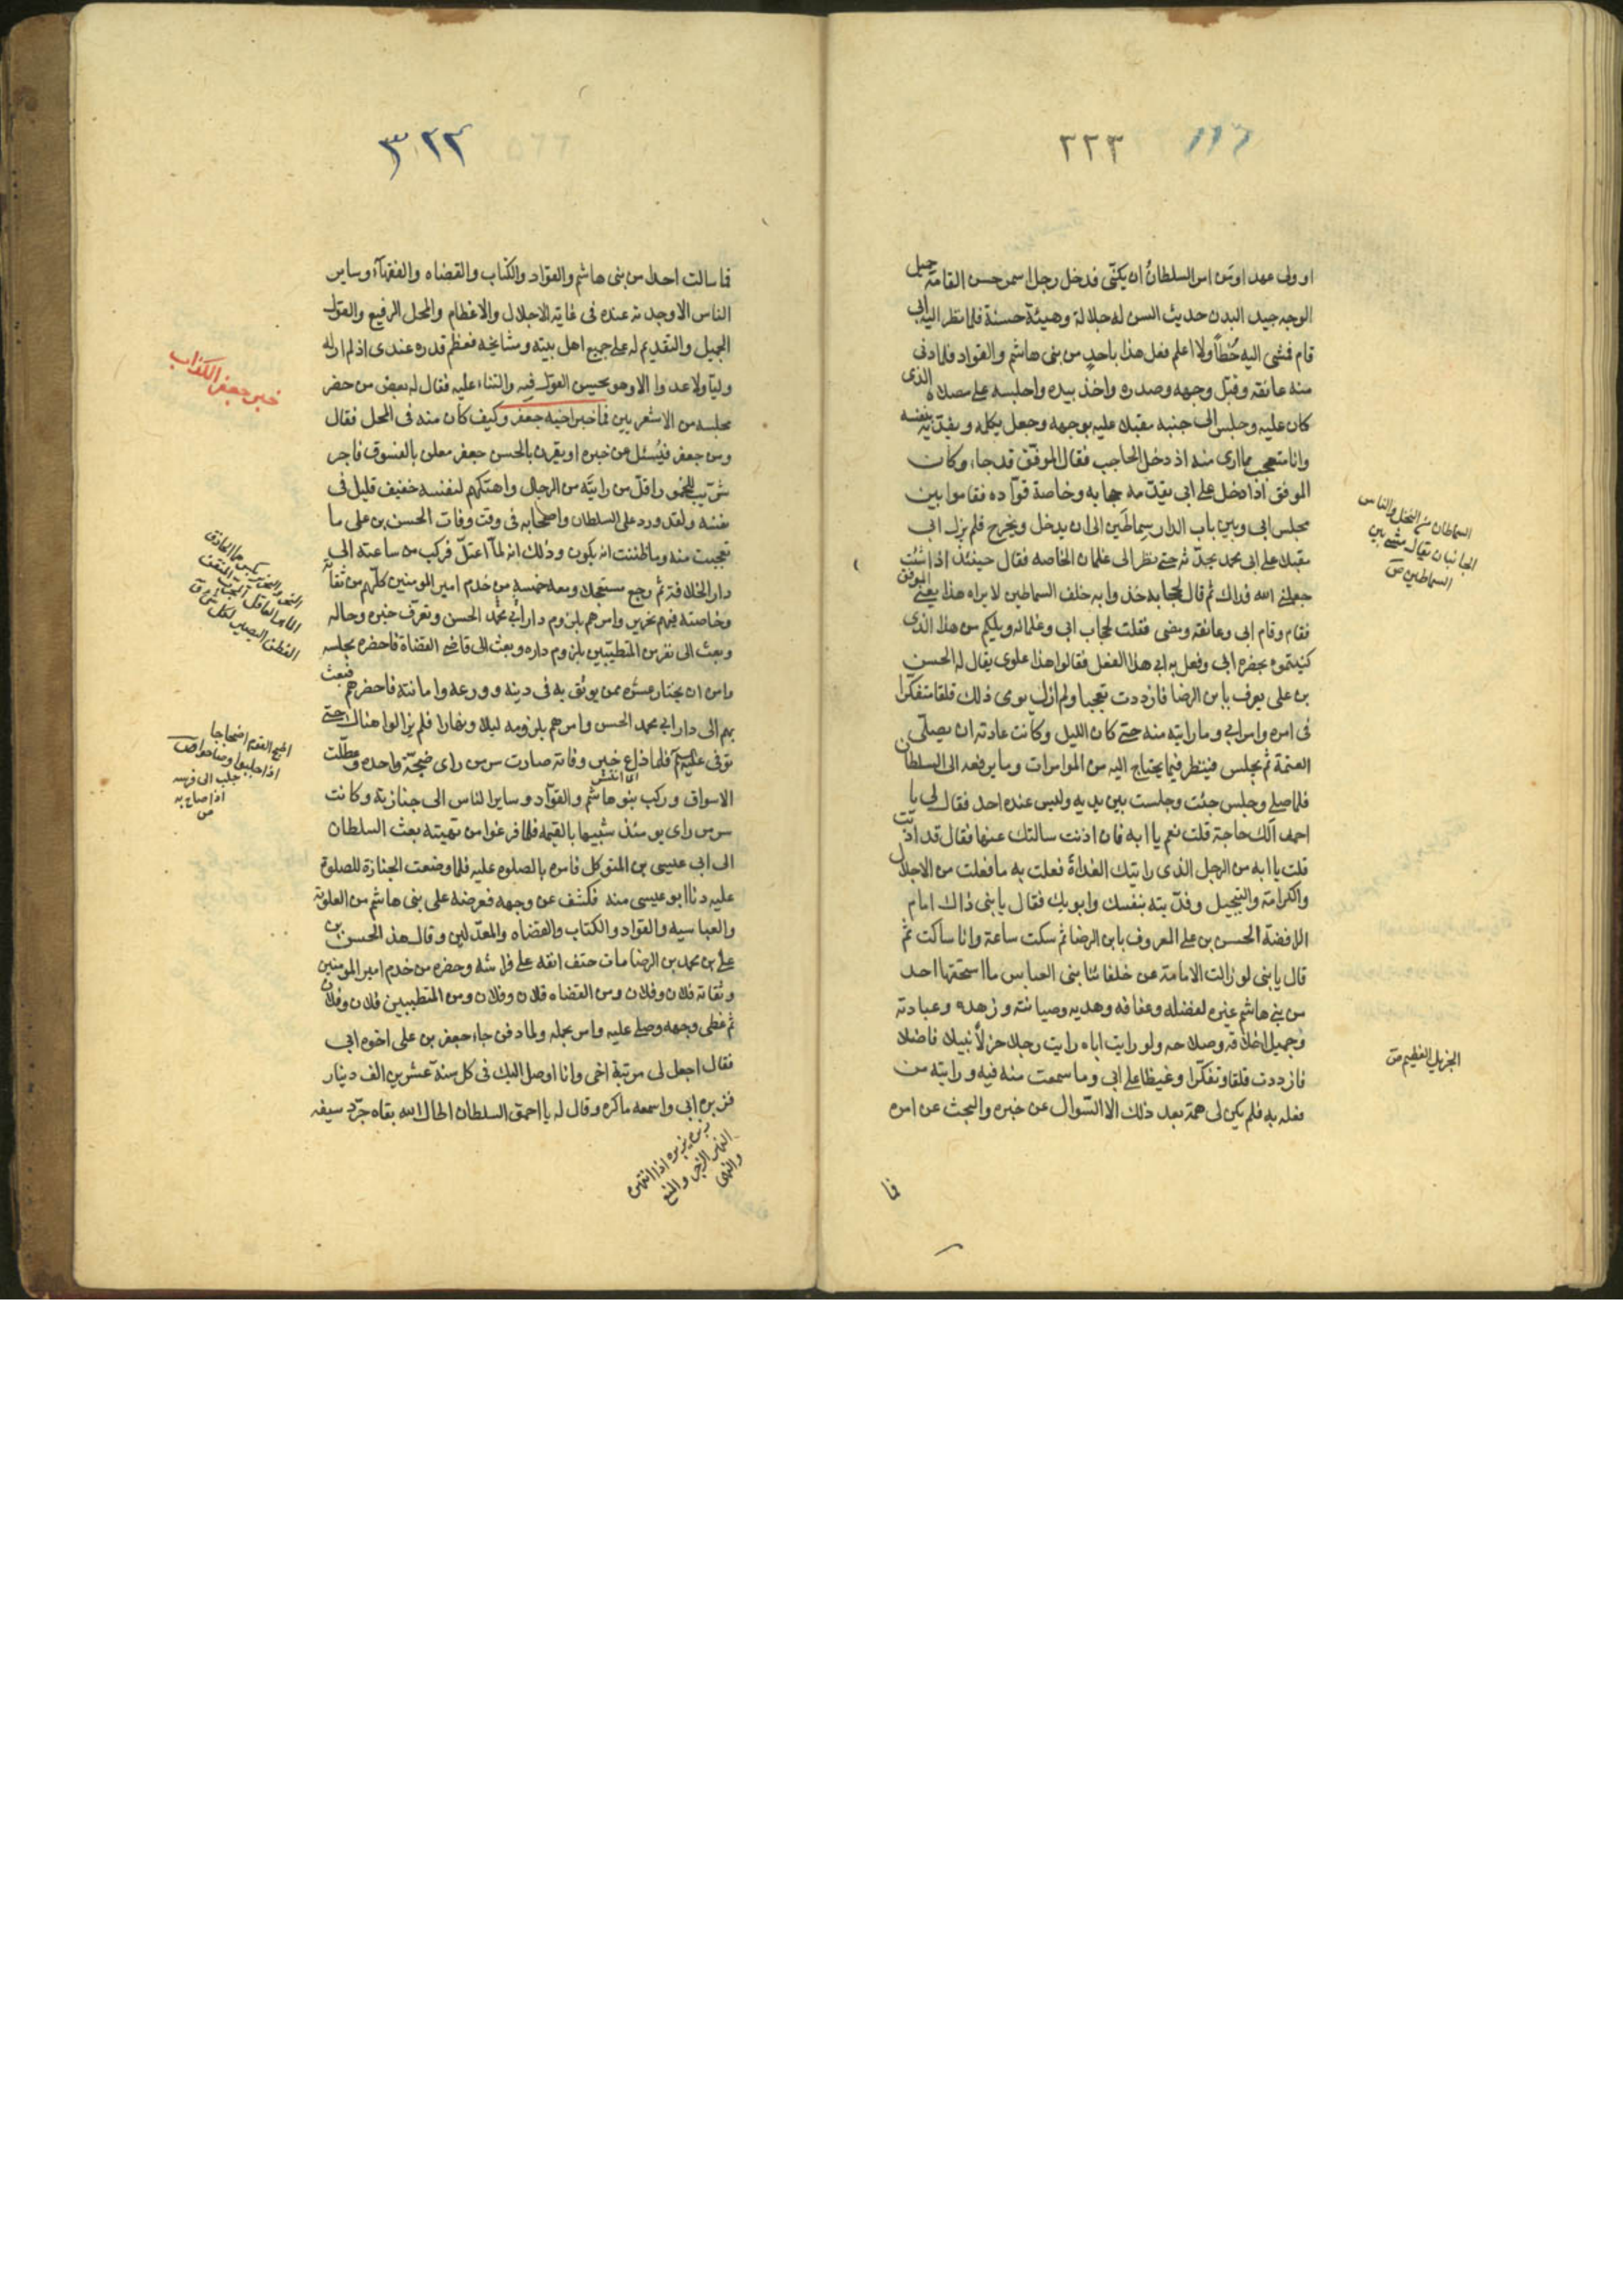 ٢٢٣
او ولى عهد او من امر السلطان ان يكنى فدخل رجل اسمر حسن القامة جميل
الوجه جيد البدن حديث السن له جلالة وهيئة حسنة فلما نظر اليه ابى
قام فمشى اليه خطأ ولا اعلم فعل هذا باحد من بنى هاشم والقواد فلما دنى
منه عانقه وقبل وجهه وصدره واخذ بيده واجلسه على مصلاه الذى
كان عليه وجلس الى جنبه مقبلا عليه بوجهه وجعل يكلمه ويفديه بنفسه
وانا متعجب مما ارى منه اذ دخل الحاجب فقال الموفق قد جاء وكان
الموفق اذا دخل على ابى يقدمه حجابه وخاصة قواده فقاموا بين
مجلس ابى وبين باب الدار سماطين الى ان يدخل ويخرج فلم يزل ابى
مقبلا على ابى محمد يحدثه حتى نظر الى غلمان الخاصه فقال حينئذ اذا شئت
جعلنى الله فداك ثم قال لحجابه خذوا به خلف السماطين لا يراه هذا يعنى الموفق
فقام وقام ابى وعانقه ومضى فقلت لحجاب ابى وغلمانه ويلكم من هذا الذى
كنيتموه بحضره ابى وفعل به ابى هذا الفعل فقالوا هذا علوى يقال له الحسن
بن على يعرف بابن الرضا فازددت تعجبا ولم ازل يومى ذلك قلقا متفكرا
فى امره وامر ابى وما رايته منه حتى كان الليل وكانت عادته ان يصلى
العتمة ثم يجلس فينظر فيما يحتاج اليه من المؤامرات وما يرفعه الى السلطان
فلما صلى وجلس جئت وجلست بين يديه وليس عنده احد فقال لى يا
احمد الك حاجة قلت نعم يا ابه فان اذنت سالتك عنها فقال قد اذنت
قلت يا ابه من الرجل الذى رايتك الغداة فعلت به ما فعلت من الاجلال
والكرامة والتبجيل وفديته بنفسك وابويك فقال يا بنى ذاك امام
الرافضة الحسن بن على المعروف بابن الرضا ثم سكت ساعة وانا ساكت ثم
قال يا بنى لو زالت الامامة عن خلفائنا بنى العباس ما استحقها احد
من بنى هاشم غيره لفضله وعفافه وهديه وصيانته وزهده وعبادته
وجميل اخلاقه وصلاحه ولو رايت اباه رايت رجلا جزلا نبيلا فاضلا
فازددت قلقا وتفكرا وغيظا على ابى وما سمعت منه فيه ورايته من
فعله به فلم يكن لى همة بعد ذلك الا السؤال عن خبره والبحث عن امره
فا
السماطان من النخل والناس
الجانبان يقال مشى بين
السماطين ص
الجزيل العظيم ق
٣٢٢
فما سالت احدا من بنى هاشم والقواد والكتاب والقضاه والفقهآء وساير
الناس الا وجدته عنده فى غاية الاجلال والاعظام والمحل الرفيع والقول
الجميل والتقديم له على جميع اهل بيته ومشايخه فعظم قدره عندى اذ لم ار له
وليا ولا عدوا الا وهو يحسن القول فيه والثناء عليه فقال له بعض من حضر
مجلسه من الاشعريين فما خبر اخيه جعفر وكيف كان منه فى المحل فقال
ومن جعفر فيسئل عن خبره او يقرن بالحسن جعفر معلن بالفسوق فاجر
شريب للخمور اقل من رايته من الرجال واهتكهم لنفسه خفيف قليل فى
نفسه ولقد ورد على السلطان واصحابه فى وقت وفات الحسن بن على ما
تعجبت منه وما ظننت انه يكون وذلك انه لما اعتل فركب من ساعته الى
دار الخلافة ثم رجع مستعجلا ومعه خمسة من خدم امير المومنين كلهم من ثقاته
وخاصته فيهم نحرير وامرهم بلزوم دار ابى محمد الحسن وتعرف خبره وحاله
وبعث الى نفر من المتطببين بلزوم داره وبعث الى قاضى القضاة فاحضره مجلسه
وامره ان يختار عشره ممن يوثق به فى دينه وورعه وامانته فاحضرهم فبعث
بهم الى دار ابى محمد الحسن وامرهم بلزومه ليلا ونهارا فلم يزالوا هناك حتى
توفى عليه السلم فلما ذاع خبر وفاته صارت سر من راى ضجة واحده وعطلت
الاسواق وركب بنو هاشم والقواد وساير الناس الى جنازته وكانت
سر من راى يومئذ شبيها بالقيمه فلما فرغوا من تهيئته بعث السلطان
الى ابى عيسى بن المتوكل فامره بالصلوه عليه فلما وضعت الجنازة للصلوة
عليه دنا ابو عيسى منه فكشف عن وجهه فعرضه على بنى هاشم من العلوية
والعباسيه والقواد والكتاب والقضاه والمعدلين وقال هذا الحسن بن
على بن محمد بن الرضا مات حتف انفه على فراشه وحضره من خدم امير المومنين
وثقاته فلان وفلان ومن القضاه فلان وفلان ومن المتطببين فلان وفلان
ثم غطى وجهه وصلى عليه وامر بحمله ولما دفن جاء جعفر بن على اخوه ابى
فقال اجعل لى مرتبة اخى وانا اوصل اليك فى كل سنة عشرين الف دينار
فزبره ابى واسمعه ما كره وقال له يا احمق السلطان اطال الله بقاه جرد سيفه
خبر جعفر الكذاب
الماهر العاقل المجرب المتقن
الفطن البصير بكل شئ ق
اضج القوم اضجاجا
اذا جلبوا وصاحوا ص
جلب الى فرسه
اذا صاح به
ص
زبره يزبره اذا انتهره
الزبر الزجر والمنع
والنهى